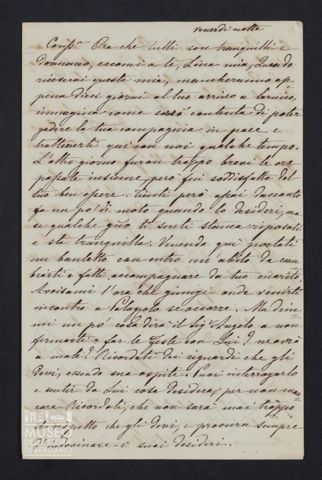 venerdì notte
Cariss.a Ora che tutti son tranquilli e
dormono, eccomi a te, Lina mia. Quando
riceverai questa mia, mancheranno ap
pena dieci giorni al tuo arrivo a
immagina come sarò contenta di poter
godere la tua compagnia in pace e
trattenerti qui con noi qualche tempo.
L'altro giorno furon troppo brevi le ore
passate insieme, però fui soddisfatta del
tuo ben essere. Tieni però a pai d'accanto
fa un po' di moto quando lo desideri, ma
se qualche giorno ti senti stanca riposati
e sta tranquilla. Venendo qui portati
un bauletto con entro un abito da cam
biarti e fatti accompagnare da tuo marito.
Avvisami l'ora che giungi onde venirti
incontro a Palazzolo se occorre. Ma dim
mi un po' cosa dirà il Sig.r Angelo a non
fermarti a far le feste con Lui? ne avrà
a male? Ricordati dei riguardi che gli
devi, essendo sua ospite. Puoi interrogarlo
e sentir da Lui cosa desidera, per non man
care. Ricordati, che non sarà mai troppo
rispetto che gli devi, e procura sempre
d'indovinare i suoi desideri.
MUSEO
DI BERGAMO